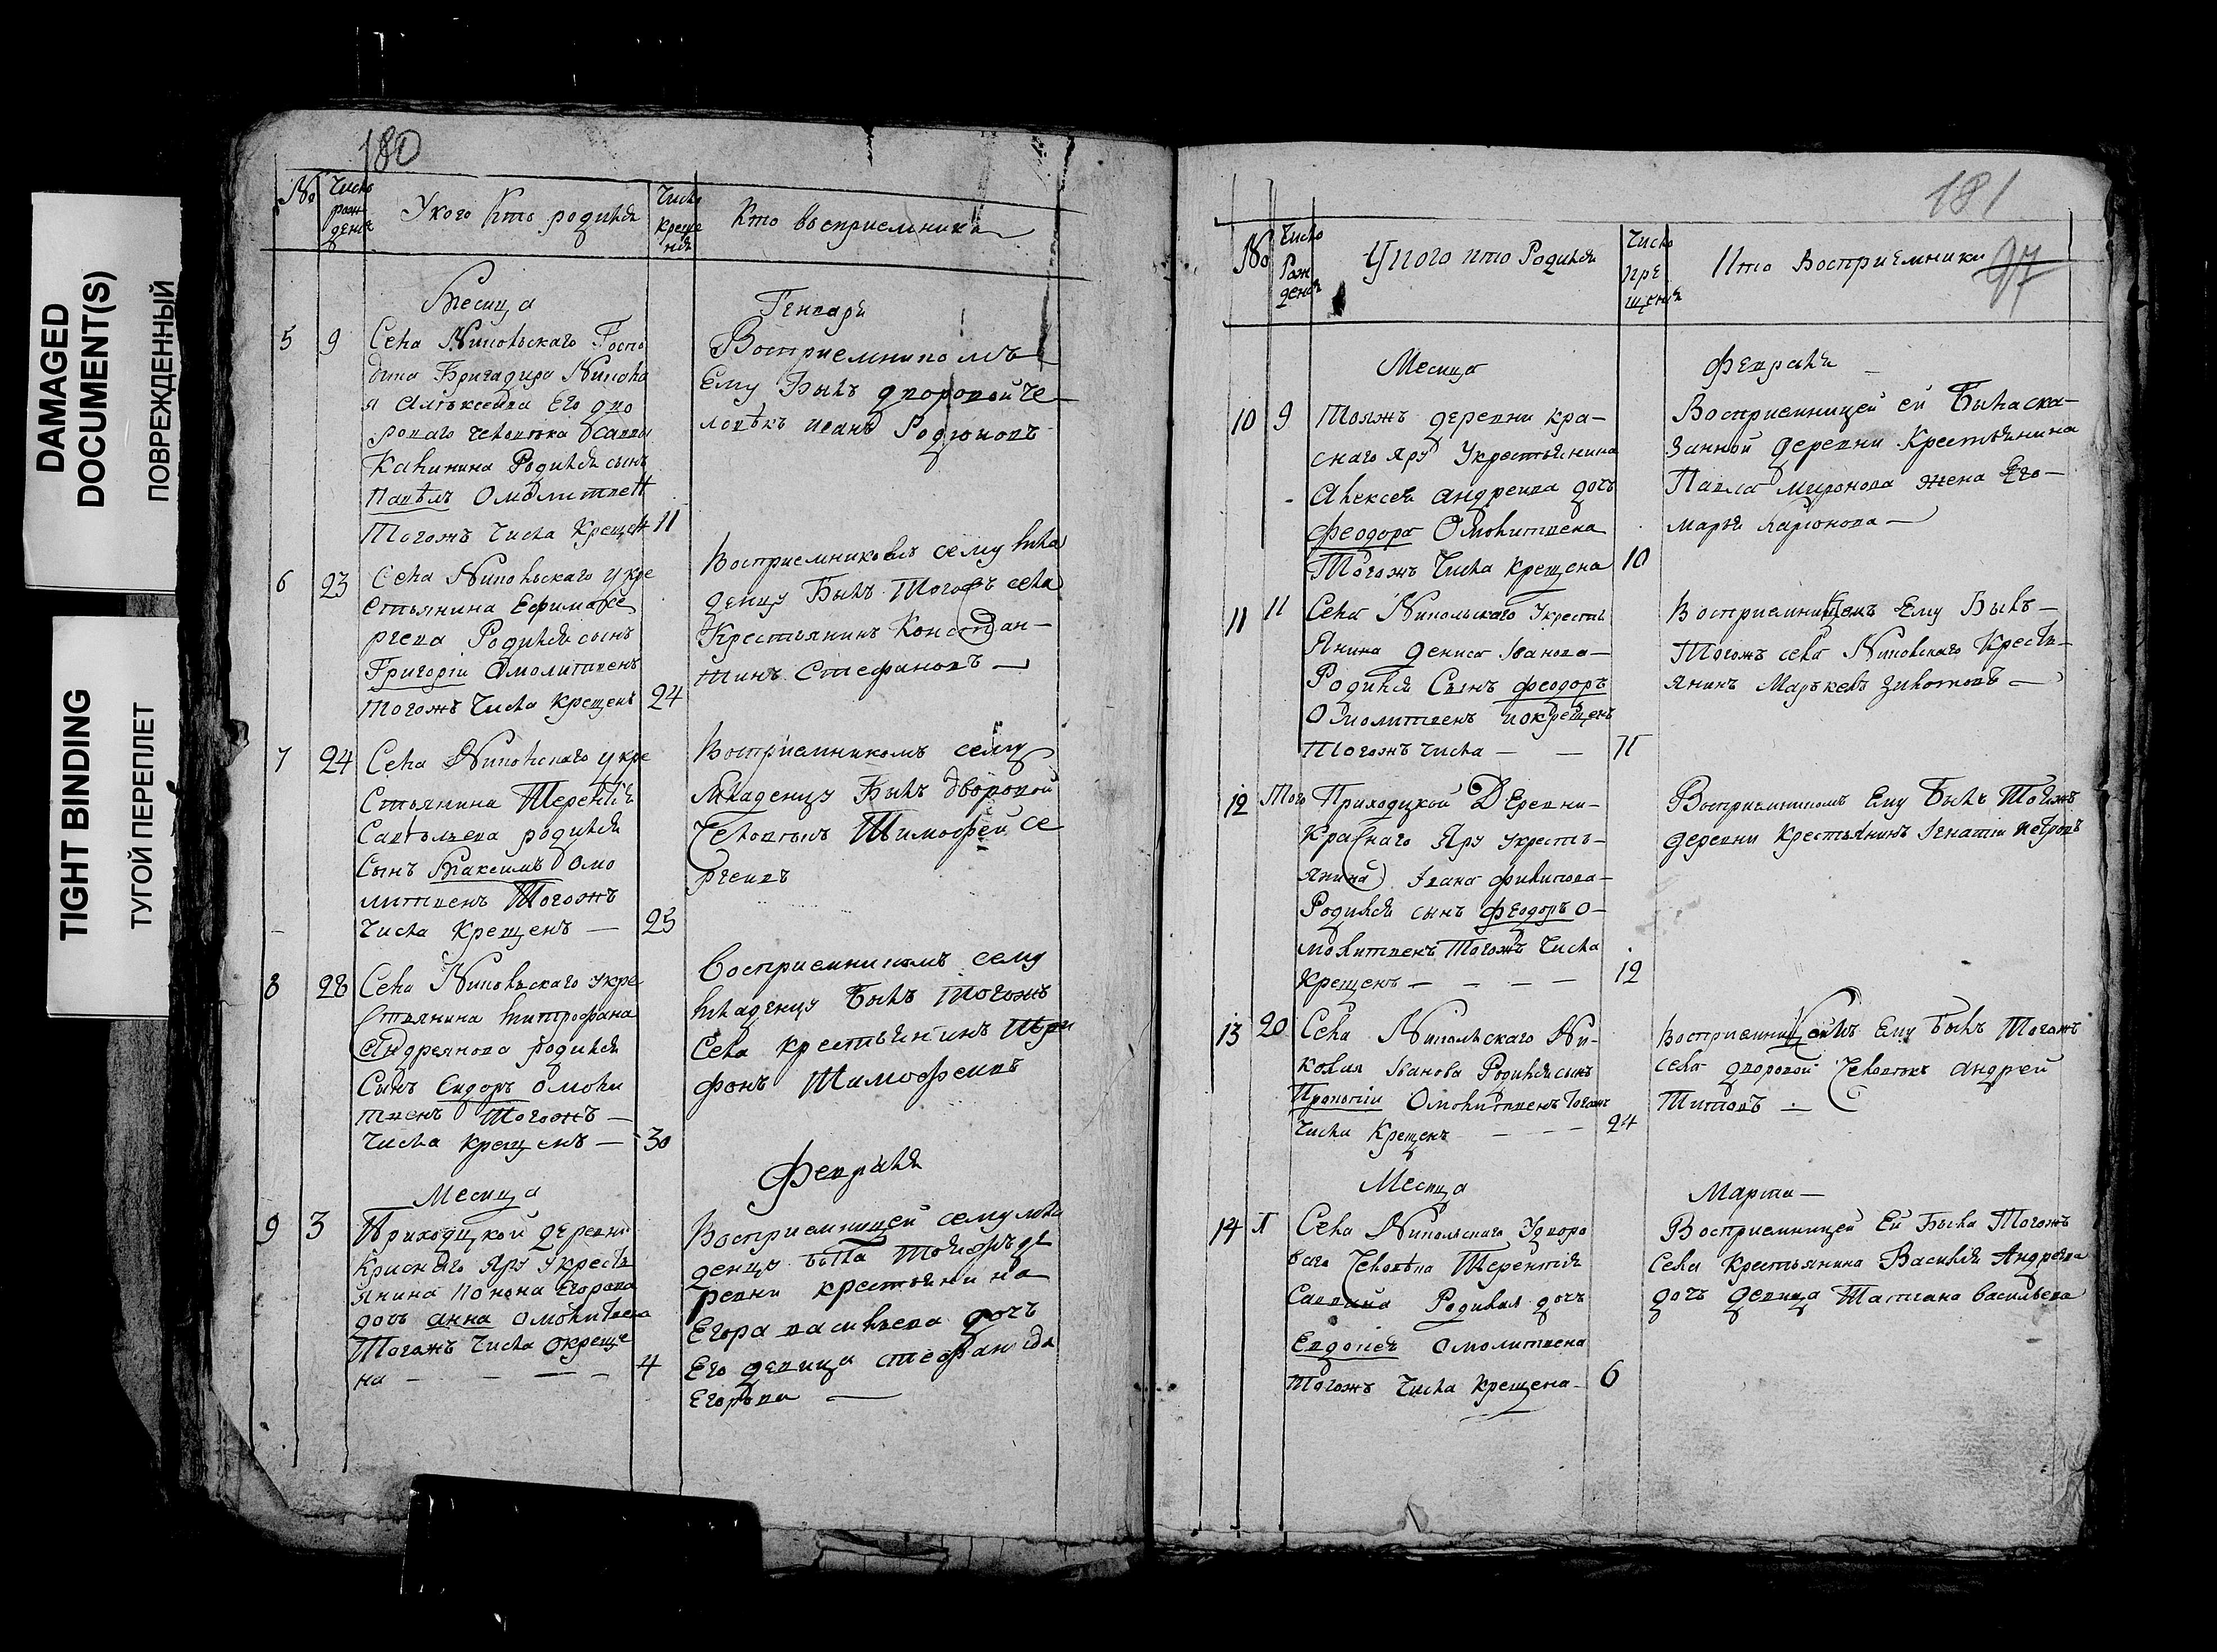 DAMAGED
DOCUMENT(S)
ПОВРЕЖДЕННЫЙ
TIGHT BINDING
ТУГОЙ ПЕРЕПЛЕТ
180
№
Число
рож
денія
У кого кто родился
Число
креще
нія
Кто восприемники
Месяца
Генваря
5
9
Села Никольскаго Госпо
дина Бригадира Никола
я Алексеева Его дво
роваго человека Савы
Калинина Родился сынъ
Павелъ Омолитвен
Тогожъ Числа Крещен
11
Восприемникомъ
Ему Былъ дворовой че
ловѣкъ иванъ Родионовъ
6
23
Села Никольскаго у кре
стьянина Ефима Се
ргеева Родился сынъ
Григорій Омолитвенъ
Тогожъ Числа крещенъ
24
Восприемникомъ сему мла
денцу Былъ Тогожъ села
Крестьянинъ Констан-
тинъ Стефановъ
7
24
Села Никольскаго у кре
стьянина Терентія
Савельева родился
Сынъ Максимъ Омо
литвенъ Тогожъ
Числа Крещенъ
25
Восприемникомъ сему
Младенцу Былъ дворовой
Человѣкъ Тимофей Се
ргеевъ
8
28
Села Никольскаго у кре
стьянина Митрофана
Андреянова родился
Сынъ Сидоръ Омоли
твенъ Тогожъ
Числа крещенъ
30
Восприемникомъ сему
младенцу Былъ Тогожъ
Села крестьянинъ Три
фонъ Тимофеевъ
Месяца
Февраля
9
3
Приходцкой деревни
Краснаго Яру у кресть
янина Конона Егорова
дочь анна Омолитвена
Тогожъ Числа Окреще
на
4
Восприемницей сему мла
денцу была тояжъ де
ревни крестьянина
Егора васильева дочь
Его девица стефанида
Егорова
181
97
№
Число
Рож
денія
У кого кто Родился
Число
кре
щенія
Кто Восприемники
Месяца
Февраля
10
9
Тояжъ деревни кра-
снаго Яру У крестьянина
Алексея андреева дочь
феодора Омолитвена
Тогожъ Числа крещена
10
Восприемницей ей Была ска-
занной деревни Крестьянина
Павла миронова жена Его
марья лаrионова
11
11
Села Никольскаго У кресть
Янина дениса Іванова
Родился Сынъ феодоръ
Омолитвенъ и окрещенъ
Тогожъ Числа
11
Восприемникомъ Ему Былъ
Тогожъ села Никольскаго Кресть-
янинъ Маркелъ Золотовъ
12
Того
Приходцкой Деревни
Краснаго Яру у кресть-
янина Івана филипова
Родился сынъ феодоръ о-
молитвенъ Тогожъ Числа
Крещенъ
12
Восприемникомъ Ему Былъ Тояжъ
деревни Крестьянинъ Ігнатій Петровъ
13
20
Села Никольскаго Ни-
колая Іванова Родился сынъ
Прокопій Омолитвенъ Тогожъ
Числа Крещенъ
24
Восприемникомъ Ему Былъ Тогожъ
села дворовой Человекъ андрей
Титовъ
Месяца
Марта
14
Села Никольскаго У дворо
ваго Человека Терентія
Савина Родилая дочь
Евдокія Омолитвена
Тогожъ Числа Крещена
6
Восприемницей Ей Была Тогожъ
Села Крестьянина Василія Андреева
дочь девица Татиана васильева